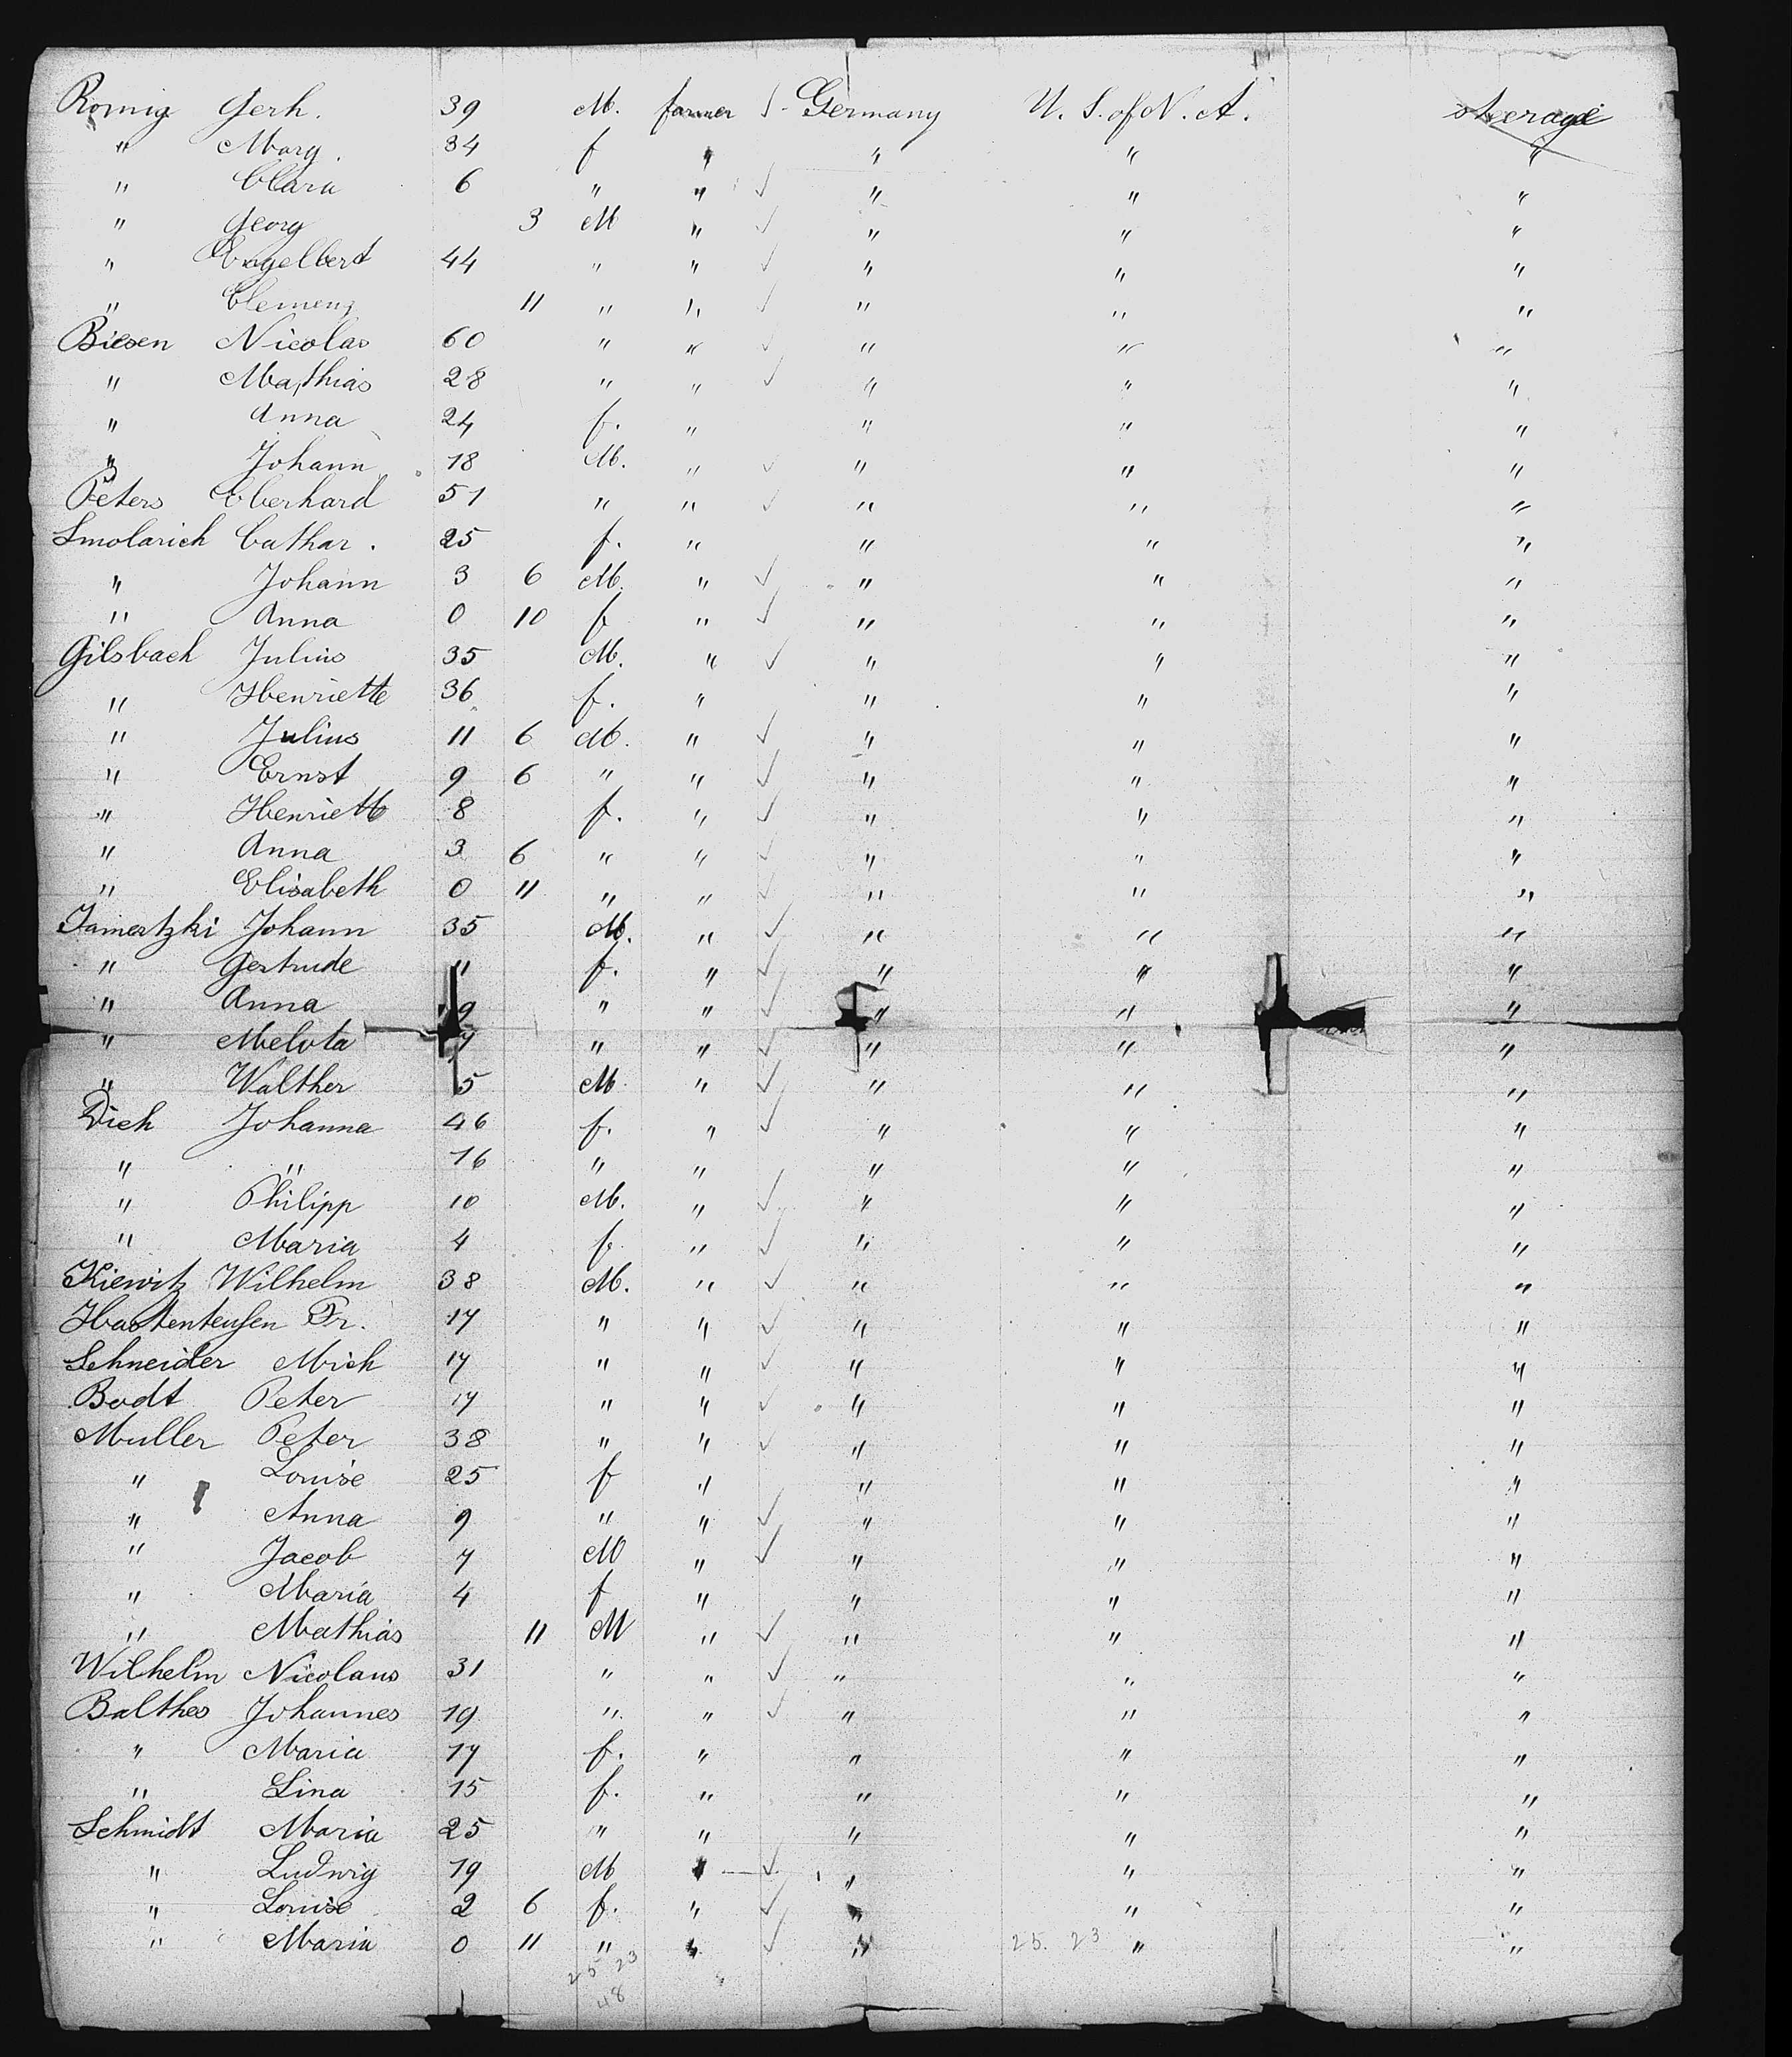 Romig Gerh. 39 M. farmer Germany U. S. of N. A. steerage
" Marg. 34 f " " " "
" Clara 6 " " " " "
" Georg 3 M " " " "
" Engelbert 44 " " " " "
" Clemenz 11 " " " " "
Biesen Nicolas 60 " " " " "
" Mathias 28 " " " " "
" Anna 24 f. " " " "
" Johann 18 M. " " " "
Peters Eberhard 51 " " " " "
Smolarich Cathar. 25 f. " " " "
" Johann 3 6 M. " " " "
" Anna 0 10 f " " " "
Gilsbach Julius 35 M. " " " "
" Henriette 36 f. " " " "
" Julius 11 6 M. " " " "
" Ernst 9 6 " " " " "
" Henriette 8 f. " " " "
" Anna 3 6 " " " " "
" Elisabeth 0 11 " " " " "
Jamertzki Johann 35 M. " " " "
" Gertrude 11 f. " " " "
" Anna 9 " " " " "
" Melota 7 " " " " "
" Walther 5 M " " " "
Dich Johanna 46 f. " " " "
" " 16 " " " " "
" Philipp 10 M. " " " "
" Maria 4 f " " " "
Kiewitz Wilhelm 38 M. " " " "
Fr. 17 " " " " "
Schneider Mich 17 " " " " "
Bodt Peter 17 " " " " "
Muller Peter 38 " " " " "
" Louise 25 f " " " "
" Anna 9 " " " " "
" Jacob 7 M " " " "
" Maria 4 f " " " "
" Mathias 11 M " " " "
Wilhelm Nicolaus 31 " " " " "
Balthes Johannes 19 " " " " "
" Maria 17 f. " " " "
" Lina 15 f. " " " "
Schmidt Maria 25 " " " " "
" Ludwig 19 M " " " "
" Louise 2 6 f. " " " "
" Maria 0 11 " " " 25. 23 " "
25 23
48